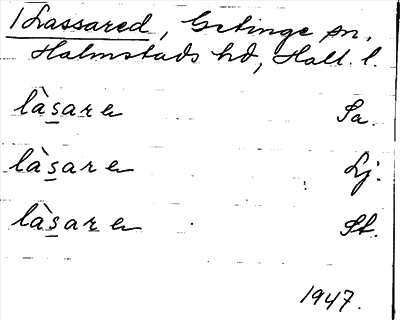 1 Lassared, Getinge sn.
Halmstads hd, Hall. l.
làs̲are Sa.
làs̲are Lj.
làs̲ar̲e St.
1947.